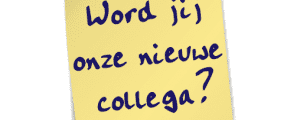 Word jij
onze nieuwe
collega?